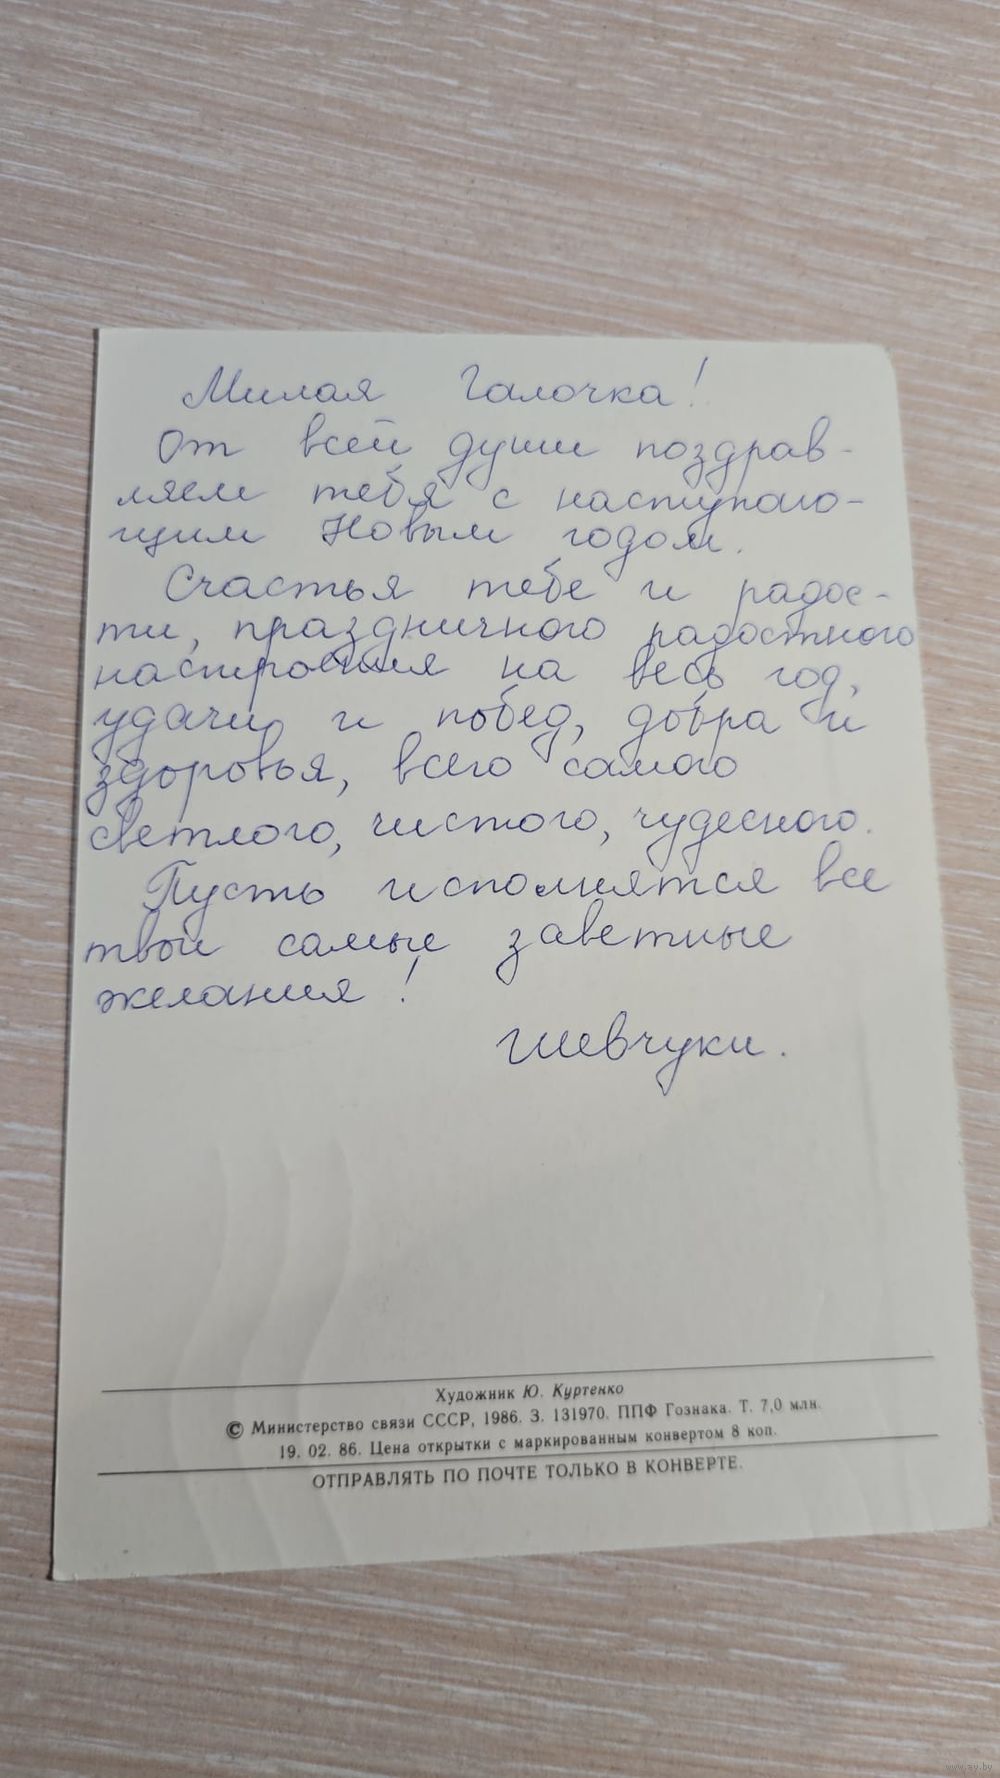 Милая Галочка!
От всей души поздрав-
ляем тебя с наступаю-
щим Новым годом.
Счастья тебе и радос-
ти, праздничного радостного
настроения на весь год,
удачи и побед, добра и
здоровья, всего самого
светлого, чистого, чудесного.
Пусть исполнятся все
твои самые заветные
желания!
Шевчуки.
Художник Ю. Куртенко
© Министерство связи СССР, 1986. З. 131970. ППФ Гознака. Т. 7,0 млн.
19. 02. 86. Цена открытки с маркированным конвертом 8 коп.
ОТПРАВЛЯТЬ ПО ПОЧТЕ ТОЛЬКО В КОНВЕРТЕ.
www.ay.by